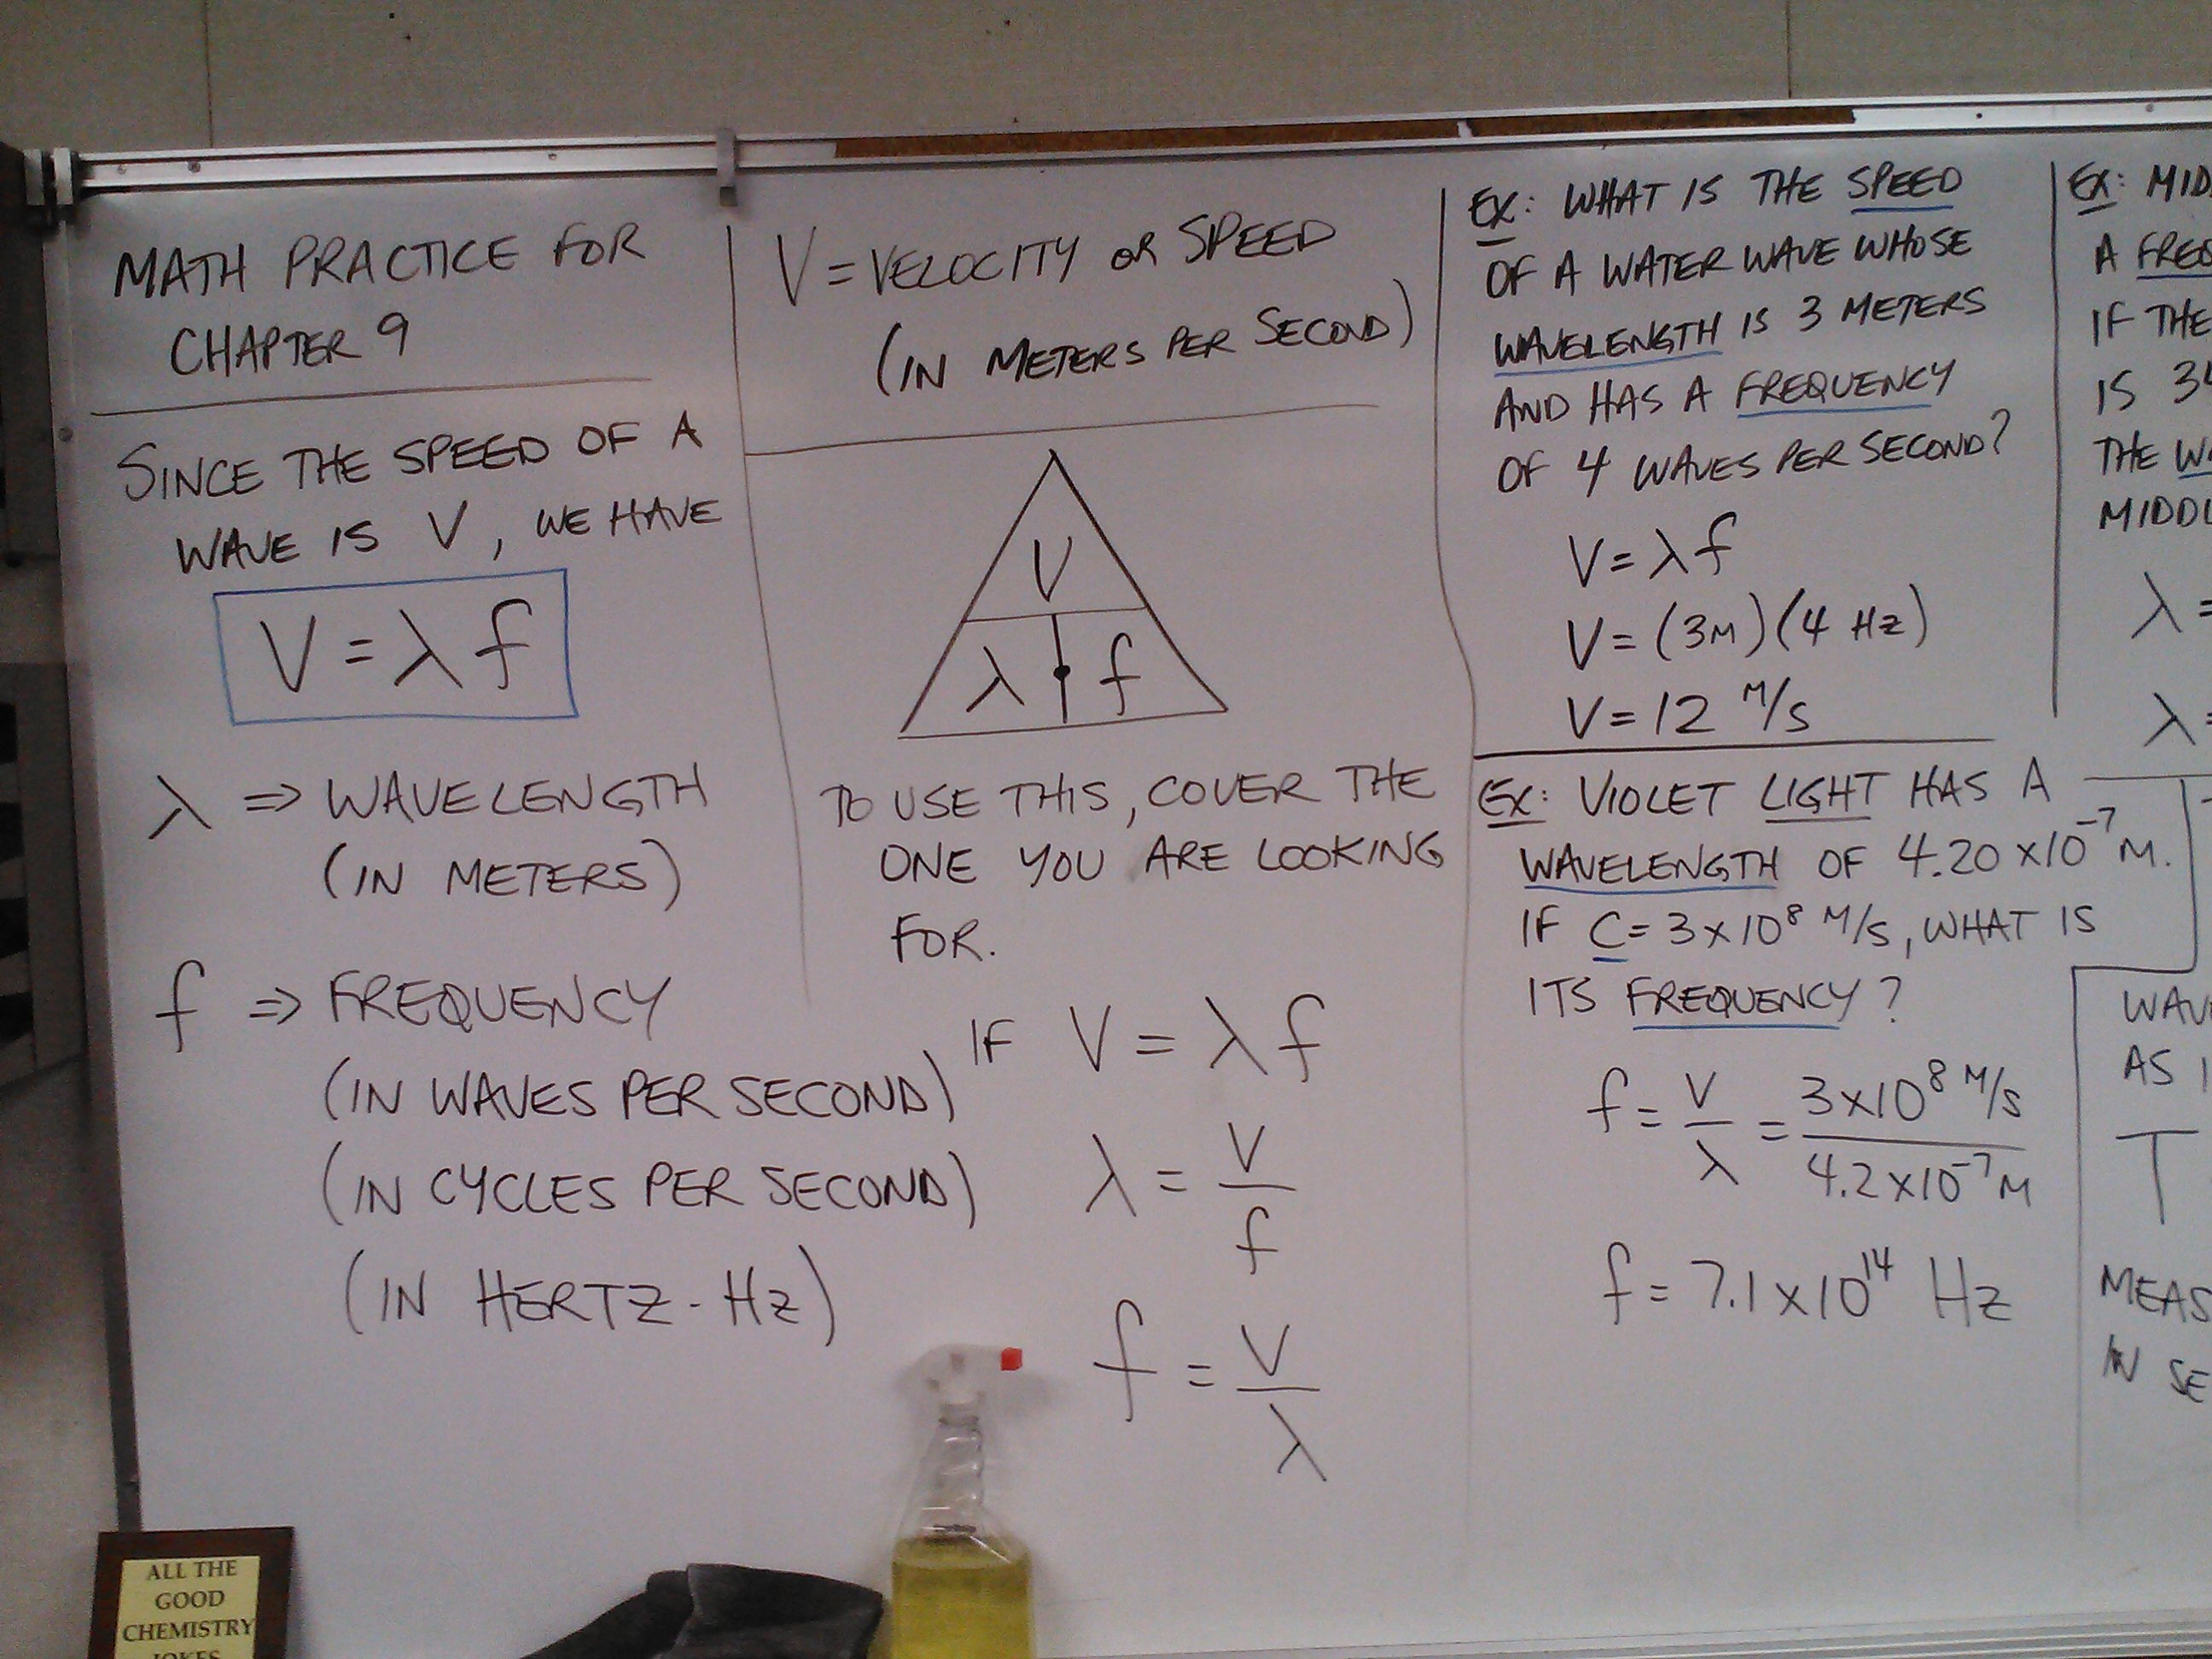 MATH PRACTICE FOR
CHAPTER 9
SINCE THE SPEED OF A
WAVE IS V, WE HAVE
V = λ f
λ ⇒ WAVELENGTH
(IN METERS)
f ⇒ FREQUENCY
(IN WAVES PER SECOND)
(IN CYCLES PER SECOND)
(IN HERTZ - Hz)
V = VELOCITY OR SPEED
(IN METERS PER SECOND)
V
λ • f
TO USE THIS, COVER THE
ONE YOU ARE LOOKING
FOR.
IF V = λ f
λ = V / f
f = V / λ
EX: WHAT IS THE SPEED
OF A WATER WAVE WHOSE
WAVELENGTH IS 3 METERS
AND HAS A FREQUENCY
OF 4 WAVES PER SECOND?
V = λ f
V = (3M)(4 Hz)
V = 12 M/S
EX: VIOLET LIGHT HAS A
WAVELENGTH OF 4.20 x 10⁻⁷ M.
IF C = 3 x 10⁸ M/S, WHAT IS
ITS FREQUENCY?
f = V / λ = 3x10⁸ M/S / 4.2x10⁻⁷ M
f = 7.1 x 10¹⁴ Hz
EX: MID
A FREQ
IF THE
IS 34
THE WA
MIDDL
λ =
λ =
WAV
AS I
T
MEAS
IN SE
ALL THE
GOOD
CHEMISTRY
JOKES